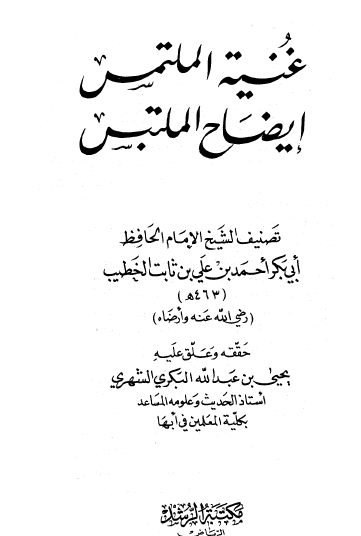 غُنية الملتمس
إيضاح الملتبس
تصنيف الشيخ الإمام الحافظ
أبي بكر أحمد بن علي بن ثابت الخطيب
(٤٦٣ هـ)
(رضي الله عنه وأرضاه)
حققه وعلق عليه
يحيى بن عبد الله البكري الشهري
أستاذ الحديث وعلومه المساعد
بكلية المعلمين في أبها
مكتبة الرشد
الرياض